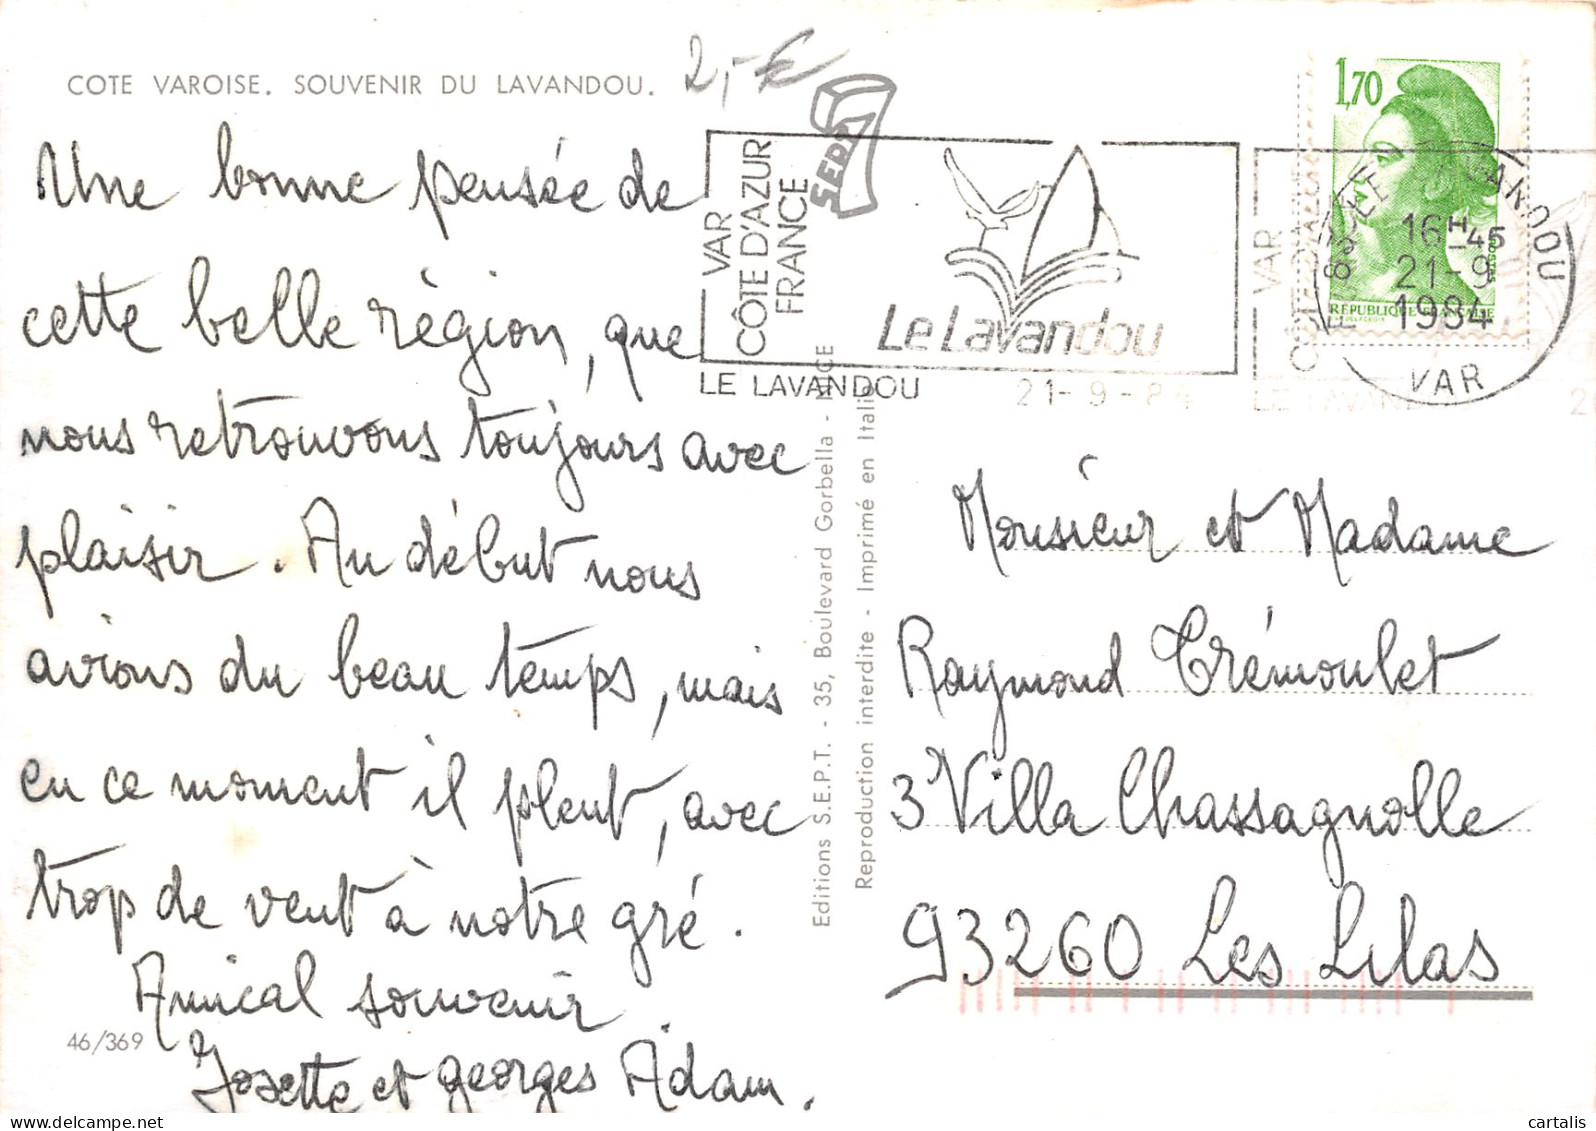 COTE VAROISE. SOUVENIR DU LAVANDOU.
2,-€
Une bonne pensée de
cette belle région, que
nous retrouvons toujours avec
plaisir. Au début nous
avions du beau temps, mais
en ce moment il pleut, avec
trop de vent à notre gré.
Amical souvenir
Josette et georges Adam.
46/369
SEPT
VAR
CÔTE D'AZUR
FRANCE
Le Lavandou
LE LAVANDOU
21-9-84
1,70
RÉPUBLIQUE FRANÇAISE
16H45
21-9
1984
VAR
Editions S.E.P.T. - 35, Boulevard Gorbella - NICE
Reproduction interdite - Imprimé en Italie
Monsieur et Madame
Raymond Trémoulet
3 Villa Chassagnolle
93260 Les Lilas
delcampe.net
cartalis